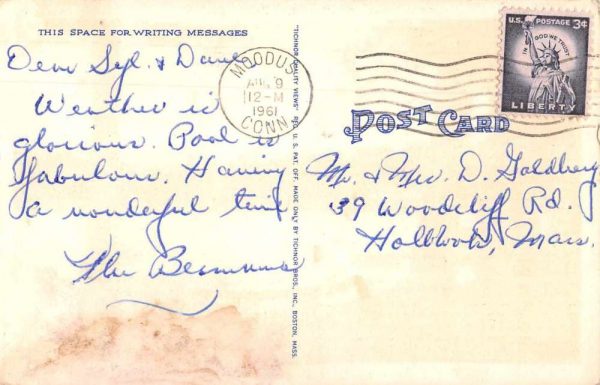 THIS SPACE FOR WRITING MESSAGES
Dear Syl. & Dave
Weather is
glorious. Pool is
fabulous. Having
a wonderful time
The
"TICHNOR QUALITY VIEWS" REG. U. S. PAT. OFF. MADE ONLY BY TICHNOR BROS., INC., BOSTON, MASS.
MOODUS
AUG 9
12-M
1961
CONN.
U.S. POSTAGE 3¢
IN GOD WE TRUST
LIBERTY
POST CARD
Mr. & Mrs. D. Goldberg
39 Woodcliff Rd.
Holbrook, Mass.